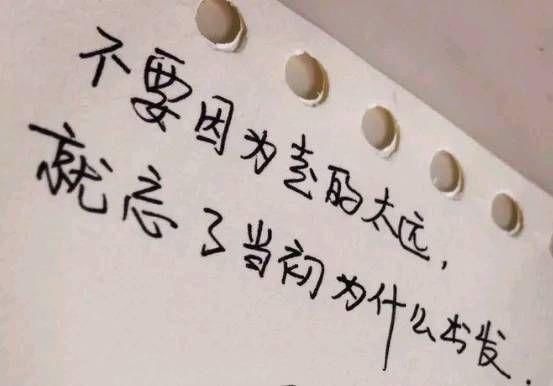 不要因为走的太远，
就忘了当初为什么出发．